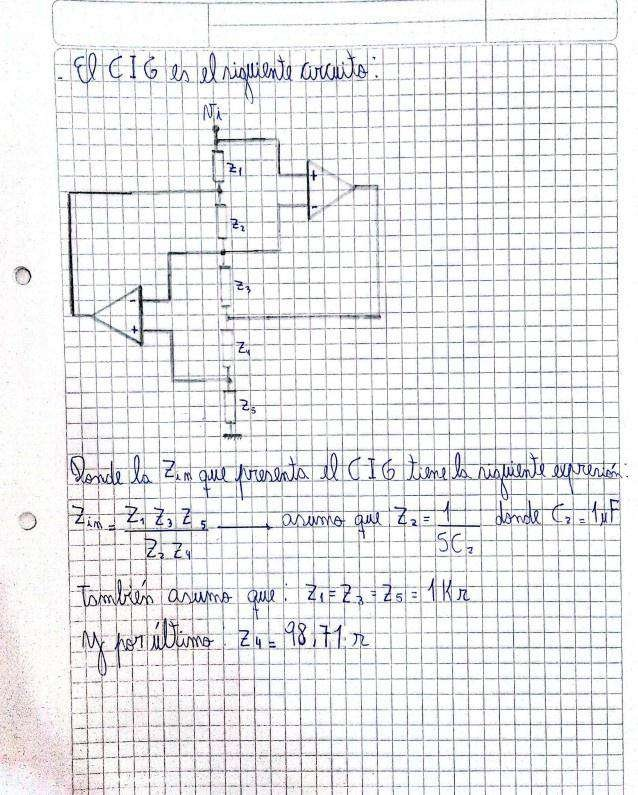 - El CIG es el siguiente circuito:
Vi
Z1
+
Z2
-
Z3
-
+
Z4
Z5
Donde la Zin que presenta el CIG tiene la siguiente expresión:
Zin = Z1 Z3 Z5 / Z2 Z4 → asumo que Z2 = 1 / SC2 donde C2 = 1μF
también asumo que: Z1 = Z3 = Z5 = 1Kr
y por último: Z4 = 98,71 r